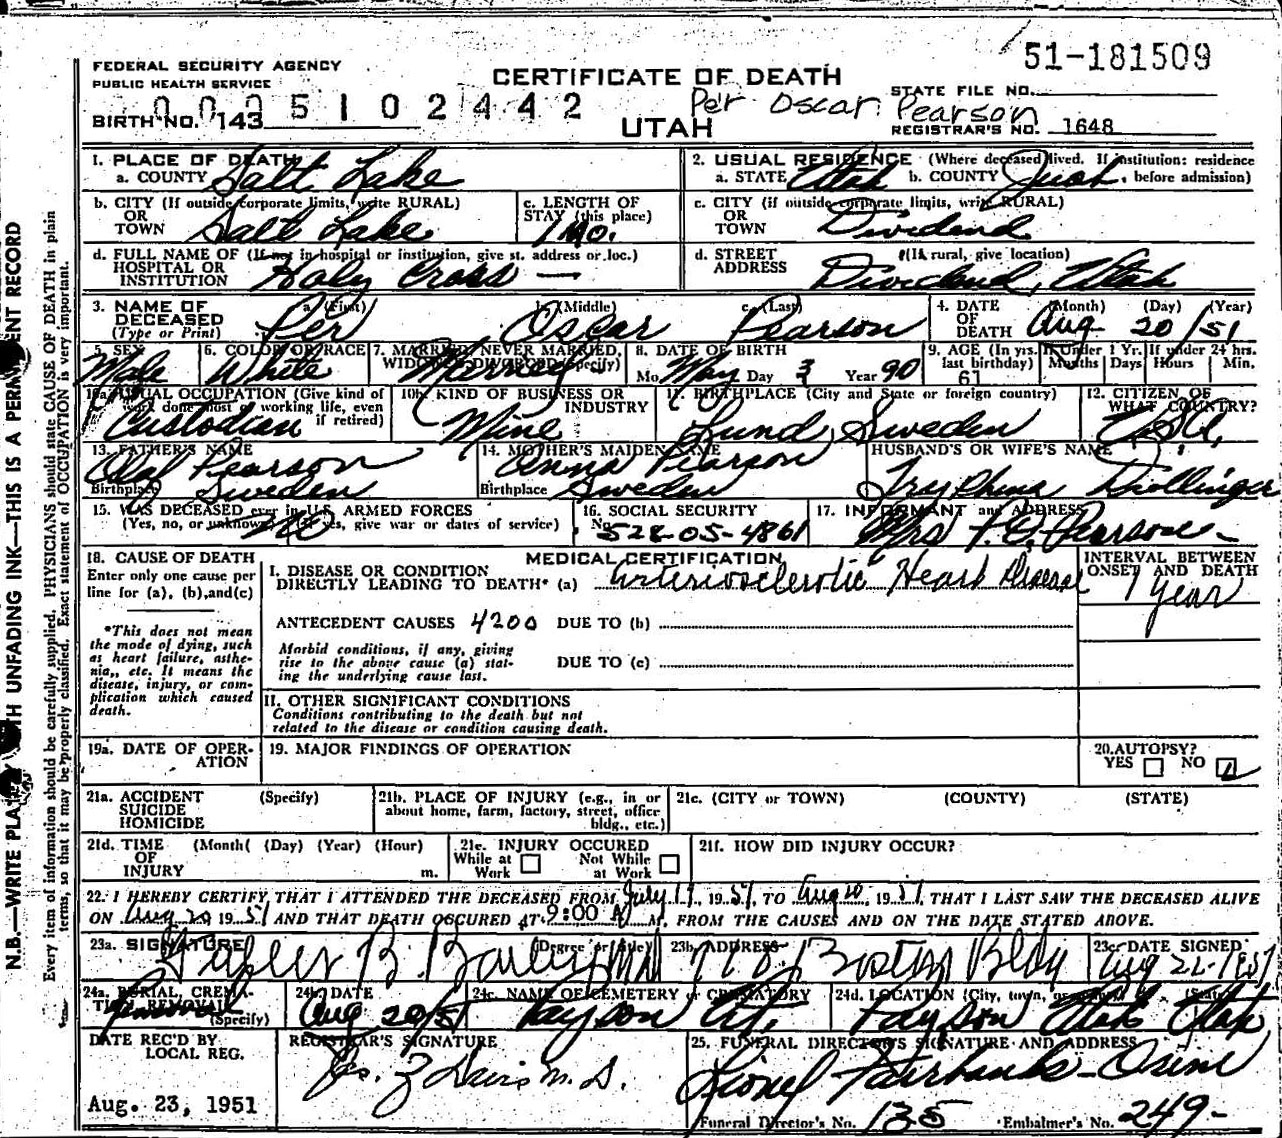 51-181509
FEDERAL SECURITY AGENCY
PUBLIC HEALTH SERVICE
CERTIFICATE OF DEATH
STATE FILE NO.
0005102442
Per Oscar Pearson
BIRTH NO. 143
UTAH
REGISTRAR'S NO. 1648
1. PLACE OF DEATH
a. COUNTY Salt Lake
2. USUAL RESIDENCE (Where deceased lived. If institution: residence before admission)
a. STATE Utah b. COUNTY Juab
b. CITY (If outside corporate limits, write RURAL) OR TOWN Salt Lake
c. LENGTH OF STAY (this place) 1 Mo.
c. CITY (if outside corporate limits, write RURAL) OR TOWN Dividend
d. FULL NAME OF (If not in hospital or institution, give st. address or loc.) HOSPITAL OR INSTITUTION Holy Cross —
d. STREET ADDRESS (If rural, give location) Dividend, Utah
3. NAME OF DECEASED (Type or Print)
a. (First) Per b. (Middle) Oscar c. (Last) Pearson
4. DATE OF DEATH (Month) (Day) (Year) Aug 20/51
5. SEX Male
6. COLOR OR RACE White
7. MARRIED, NEVER MARRIED, WIDOWED, DIVORCED (Specify) Married
8. DATE OF BIRTH Mo. May Day 3 Year 90
9. AGE (In yrs. last birthday) 61
If Under 1 Yr. Months Days
If under 24 hrs. Hours Min.
10a. USUAL OCCUPATION (Give kind of work done most of working life, even if retired) Custodian
10b. KIND OF BUSINESS OR INDUSTRY Mine
11. BIRTHPLACE (City and State or foreign country) Lund, Sweden
12. CITIZEN OF WHAT COUNTRY? USA
13. FATHER'S NAME Olof Pearson
Birthplace Sweden
14. MOTHER'S MAIDEN NAME Anna Pearson
Birthplace Sweden
HUSBAND'S OR WIFE'S NAME
Tryphena Drollinger
15. WAS DECEASED ever in U.S. ARMED FORCES (Yes, no, or unknown) (If yes, give war or dates of service) No
16. SOCIAL SECURITY No. 528-05-4861
17. INFORMANT and ADDRESS Mrs P.O. Pearson -
18. CAUSE OF DEATH
Enter only one cause per line for (a), (b), and (c)
*This does not mean the mode of dying, such as heart failure, asthenia,, etc. It means the disease, injury, or complication which caused death.
MEDICAL CERTIFICATION
I. DISEASE OR CONDITION DIRECTLY LEADING TO DEATH* (a) Arteriosclerotic Heart Disease
INTERVAL BETWEEN ONSET AND DEATH
1 year
ANTECEDENT CAUSES 4200 DUE TO (b)
Morbid conditions, if any, giving rise to the above cause (a) stating the underlying cause last.
DUE TO (c)
II. OTHER SIGNIFICANT CONDITIONS
Conditions contributing to the death but not related to the disease or condition causing death.
19a. DATE OF OPERATION
19. MAJOR FINDINGS OF OPERATION
20. AUTOPSY?
YES NO
21a. ACCIDENT SUICIDE HOMICIDE (Specify)
21b. PLACE OF INJURY (e.g., in or about home, farm, factory, street, office bldg., etc.)
21c. (CITY or TOWN) (COUNTY) (STATE)
21d. TIME OF INJURY (Month( (Day) (Year) (Hour) m.
21e. INJURY OCCURED
While at Work Not While at Work
21f. HOW DID INJURY OCCUR?
22. I HEREBY CERTIFY, THAT I ATTENDED THE DECEASED FROM July 17, 1951, TO Aug 20, 1951, THAT I LAST SAW THE DECEASED ALIVE
ON Aug 20 1951 AND THAT DEATH OCCURED AT 9:00 A M. FROM THE CAUSES AND ON THE DATE STATED ABOVE.
23a. SIGNATURE (Degree or title) B. Bailey MD
23b. ADDRESS Boston Bldg
23c. DATE SIGNED Aug 22-1951
24a. BURIAL, CREMATION, REMOVAL (Specify) Removal
24b. DATE Aug 20/51
24c. NAME OF CEMETERY or CREMATORY Payson City
24d. LOCATION (City, town, or county) (State) Payson Utah Utah
DATE REC'D BY LOCAL REG.
Aug. 23, 1951
REGISTRAR'S SIGNATURE
Z Davis M.D.
25. FUNERAL DIRECTOR'S SIGNATURE AND ADDRESS
Lionel Fairbanks -
Funeral Director's No. 135 Embalmer's No. 249-
N.B.—WRITE PLAINLY WITH UNFADING INK—THIS IS A PERMANENT RECORD
Every item of information should be carefully supplied. PHYSICIANS should state CAUSE OF DEATH in plain
terms, so that it may be properly classified. Exact statement of OCCUPATION is very important.